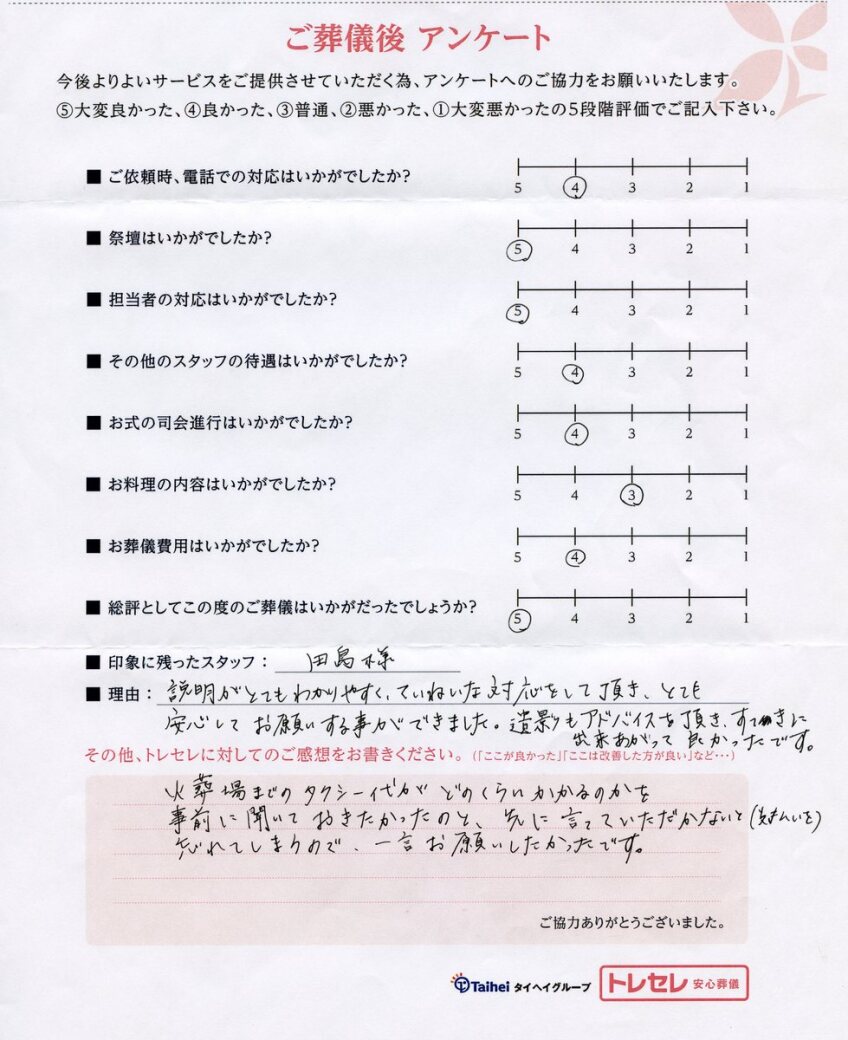 ご葬儀後 アンケート
今後よりよいサービスをご提供させていただく為、アンケートへのご協力をお願いいたします。
⑤大変良かった、④良かった、③普通、②悪かった、①大変悪かったの5段階評価でご記入下さい。
■ ご依頼時、電話での対応はいかがでしたか?
5 4 3 2 1
■ 祭壇はいかがでしたか?
5 4 3 2 1
■ 担当者の対応はいかがでしたか?
5 4 3 2 1
■ その他のスタッフの待遇はいかがでしたか?
5 4 3 2 1
■ お式の司会進行はいかがでしたか?
5 4 3 2 1
■ お料理の内容はいかがでしたか?
5 4 3 2 1
■ お葬儀費用はいかがでしたか?
5 4 3 2 1
■ 総評としてこの度のご葬儀はいかがだったでしょうか?
5 4 3 2 1
■ 印象に残ったスタッフ: 田島様
■ 理由: 説明がとてもわかりやすく、ていねいな対応をして頂き、とても
安心してお願いする事ができました。遺影もアドバイスを頂き、すてきに
出来あがって良かったです。
その他、トレセレに対してのご感想をお書きください。(「ここが良かった」「ここは改善した方が良い」など…)
火葬場までのタクシー代がどのくらいかかるのかを
事前に聞いておきたかったのと、先に言っていただかないと
忘れてしまうので、一言お願いしたかったです。
ご協力ありがとうございました。
Taihei タイヘイグループ トレセレ 安心葬儀